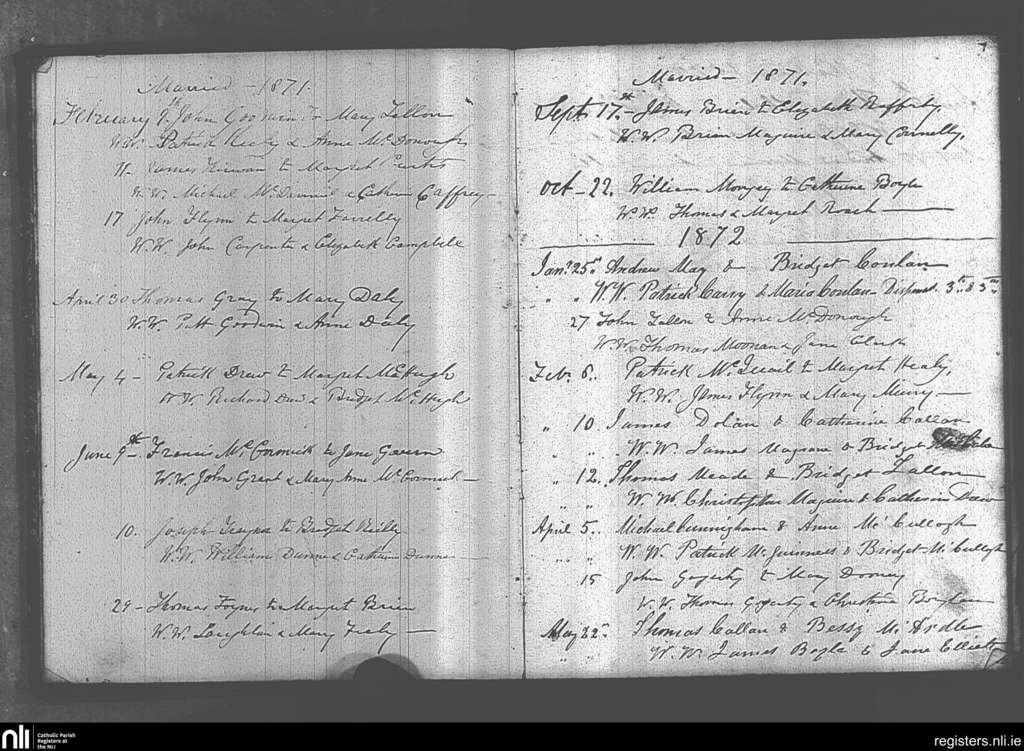 Married - 1871.
February 9th John Goodwin to Mary Fallon
W.W. Patrick Reely & Anne McDonough
11 - James Kirwan to Margret
W.W. Michael McDannil & Catherin Caffrey -
17 John Flynn to Margret Farrelly
W.W. John Carpenter & Elizabeth Campbell
April 30 Thomas Gray to Mary Daly
W.W. Patt Goodwin & Anne Daly
May 4 - Patrick Drew to Margret McHugh
W.W. Richard Drew & Bridget McHugh
June 9th - Francis McCormick to Jane Gavern
W.W. John Grant & Mary Anne McCormick -
10. Joseph Traynor to Bridget Reilly
W.W. William Dunne & Catherin Dunne -
29 - Thomas Foynes to Margret Brien
W.W. Laughlin & Mary Fealy -
Married - 1871.
Sept 17th James Brien to Elizabeth Rafferty
W.W. Brian Maguire & Mary Connelly.
Oct - 22. William Mongey to Catherine Boyle
W.W. Thomas & Margret Roach -
1872
Jany 25th Andrew May & Bridget Conlan
" " W.W. Patrick Carry & Maria Conlan - Dispensd. 3rd & 3rd
27 John Fallon & Anne McDonough
W.W. Thomas Moonan & Jane Clark
Feb. 6.. Patrick McQuail to Margret Healy,
W.W. James Flynn & Mary -
" 10 James Dolan & Catherine Callan
" " W.W. James Magrane & Bridget
" 12. Thomas Meade & Bridget Fallon
" " W.W. Christopher Maguire & Catherin Drew
April 5. Michael Cunningham & Anne McCullogh
" " W.W. Patrick McGuinness & Bridget McCullogh
15 John Gogerty to Mary Dooney
W.W. Thomas Gogerty & Christina Boylan
May 22nd Thomas Callan & Bessy McArdle
" " W.W. James Boyle & Jane Elliott
nli
Catholic Parish
Registers at
the NLI
registers.nli.ie